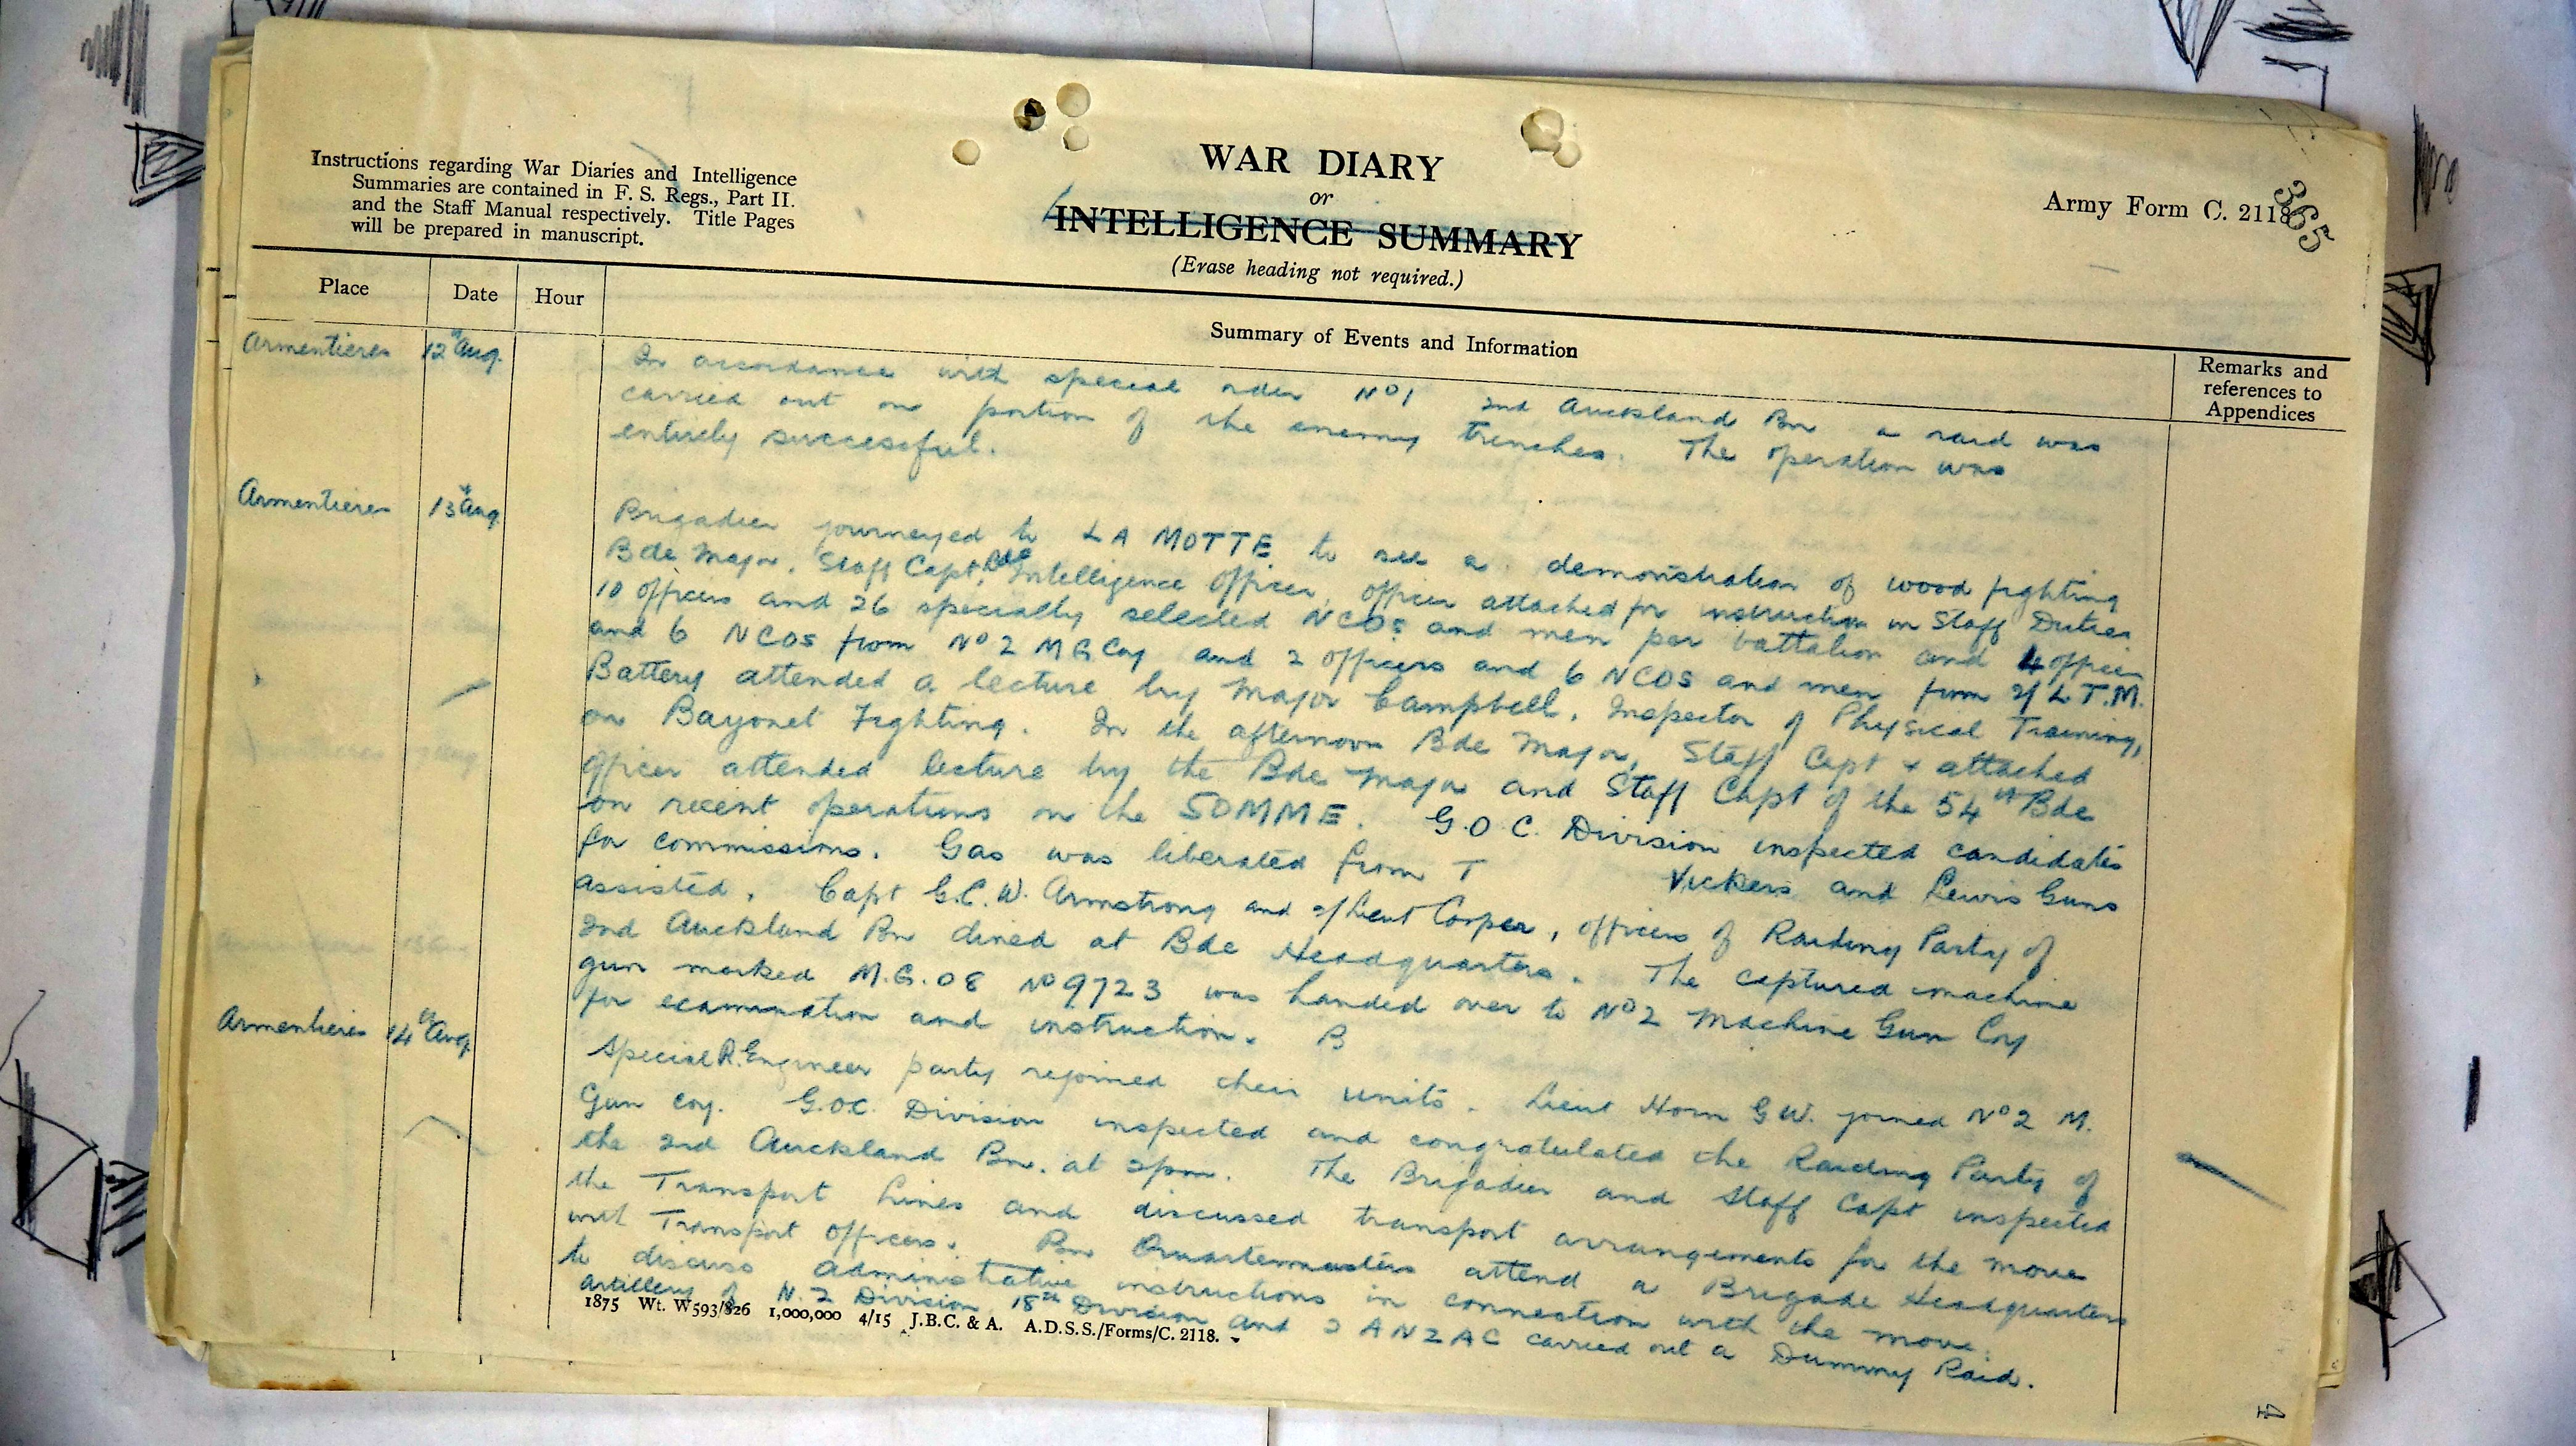 Instructions regarding War Diaries and Intelligence
Summaries are contained in F. S. Regs., Part II.
and the Staff Manual respectively. Title Pages
will be prepared in manuscript.
WAR DIARY
or
INTELLIGENCE SUMMARY
(Erase heading not required.)
Army Form C. 2118
365
Place
Date
Hour
Summary of Events and Information
Remarks and
references to
Appendices
Armentieres 12th Aug.
In accordance with special order No 1 2nd Auckland Bn a raid was
carried out on portion of the enemy trenches. The operation was
entirely successful.
Armentieres 13th Aug
Brigadier journeyed to LA MOTTE to see a demonstration of wood fighting
Bde Major, Staff Capt, Bde Intelligence Officer, officer attached for instruction in Staff Duties
10 officers and 26 specially selected NCOs and men per battalion and 4 officers
and 6 NCOs from No 2 M G Coy and 2 officers and 6 NCOS and men from 2/ L.T.M.
Battery attended a lecture by Major Campbell, Inspector of Physical Training,
on Bayonet Fighting. In the afternoon Bde Major, Staff Capt & attached
officer attended lecture by the Bde Major and Staff Capt of the 54th Bde
on recent operations on the SOMME. G.O.C. Division inspected candidates
for commissions. Gas was liberated from T Vickers and Lewis Guns
assisted. Capt G.C.W. Armstrong and 2/Lieut Cooper, officers of Raiding Party of
2nd Auckland Bn dined at Bde Headquarters. The captured machine
gun marked M.G. 08 No 9723 was handed over to No 2 Machine Gun Coy
for examination and instruction. B
Armentieres 14th Aug
Special R. Engineer party rejoined their units. Lieut Horn G W. joined No 2 M.
Gun Coy. G.O.C. Division inspected and congratulated the Raiding Party of
the 2nd Auckland Bn. at 2pm. The Brigadier and Staff Capt inspected
the Transport Lines and discussed transport arrangements for the move
with Transport Officers. Bn Quartermasters attend a Brigade Headquarters
to discuss administrative instructions in connection with the move.
Artillery of N.Z Division, 18th Division and 2 ANZAC carried out a Dummy Raid.
1875 Wt. W593/826 1,000,000 4/15 J.B.C. & A. A.D.S.S./Forms/C. 2118.
4